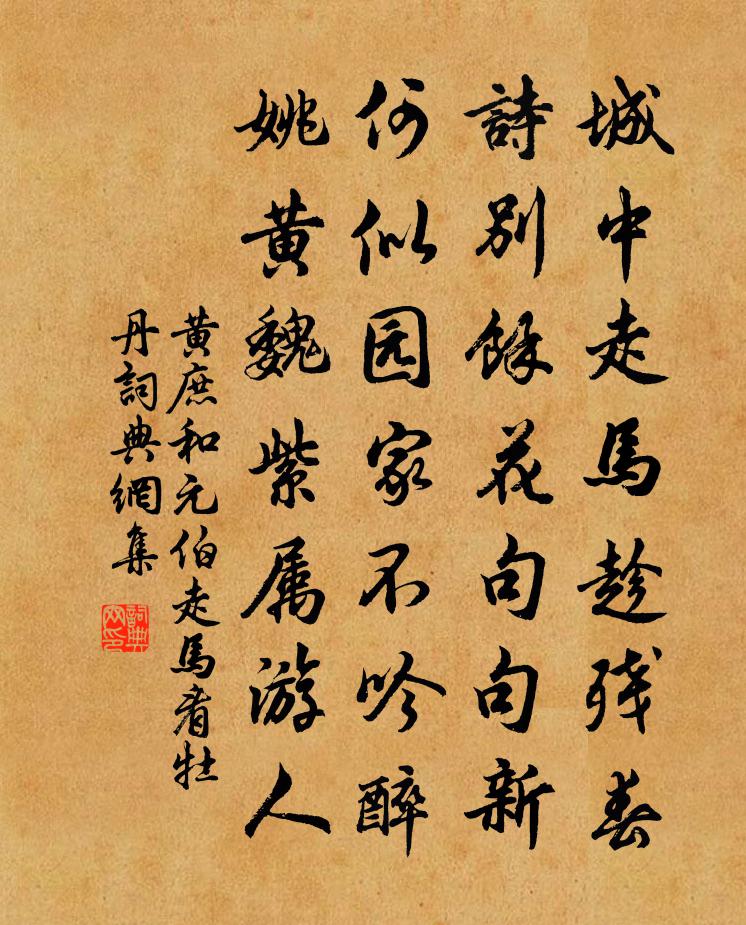 城中走馬趁残春
詩別餘花句句新
何似园家不吟醉
姚黄魏紫属游人
黄庶和元伯走馬看牡
丹詞典網集
詞典网印